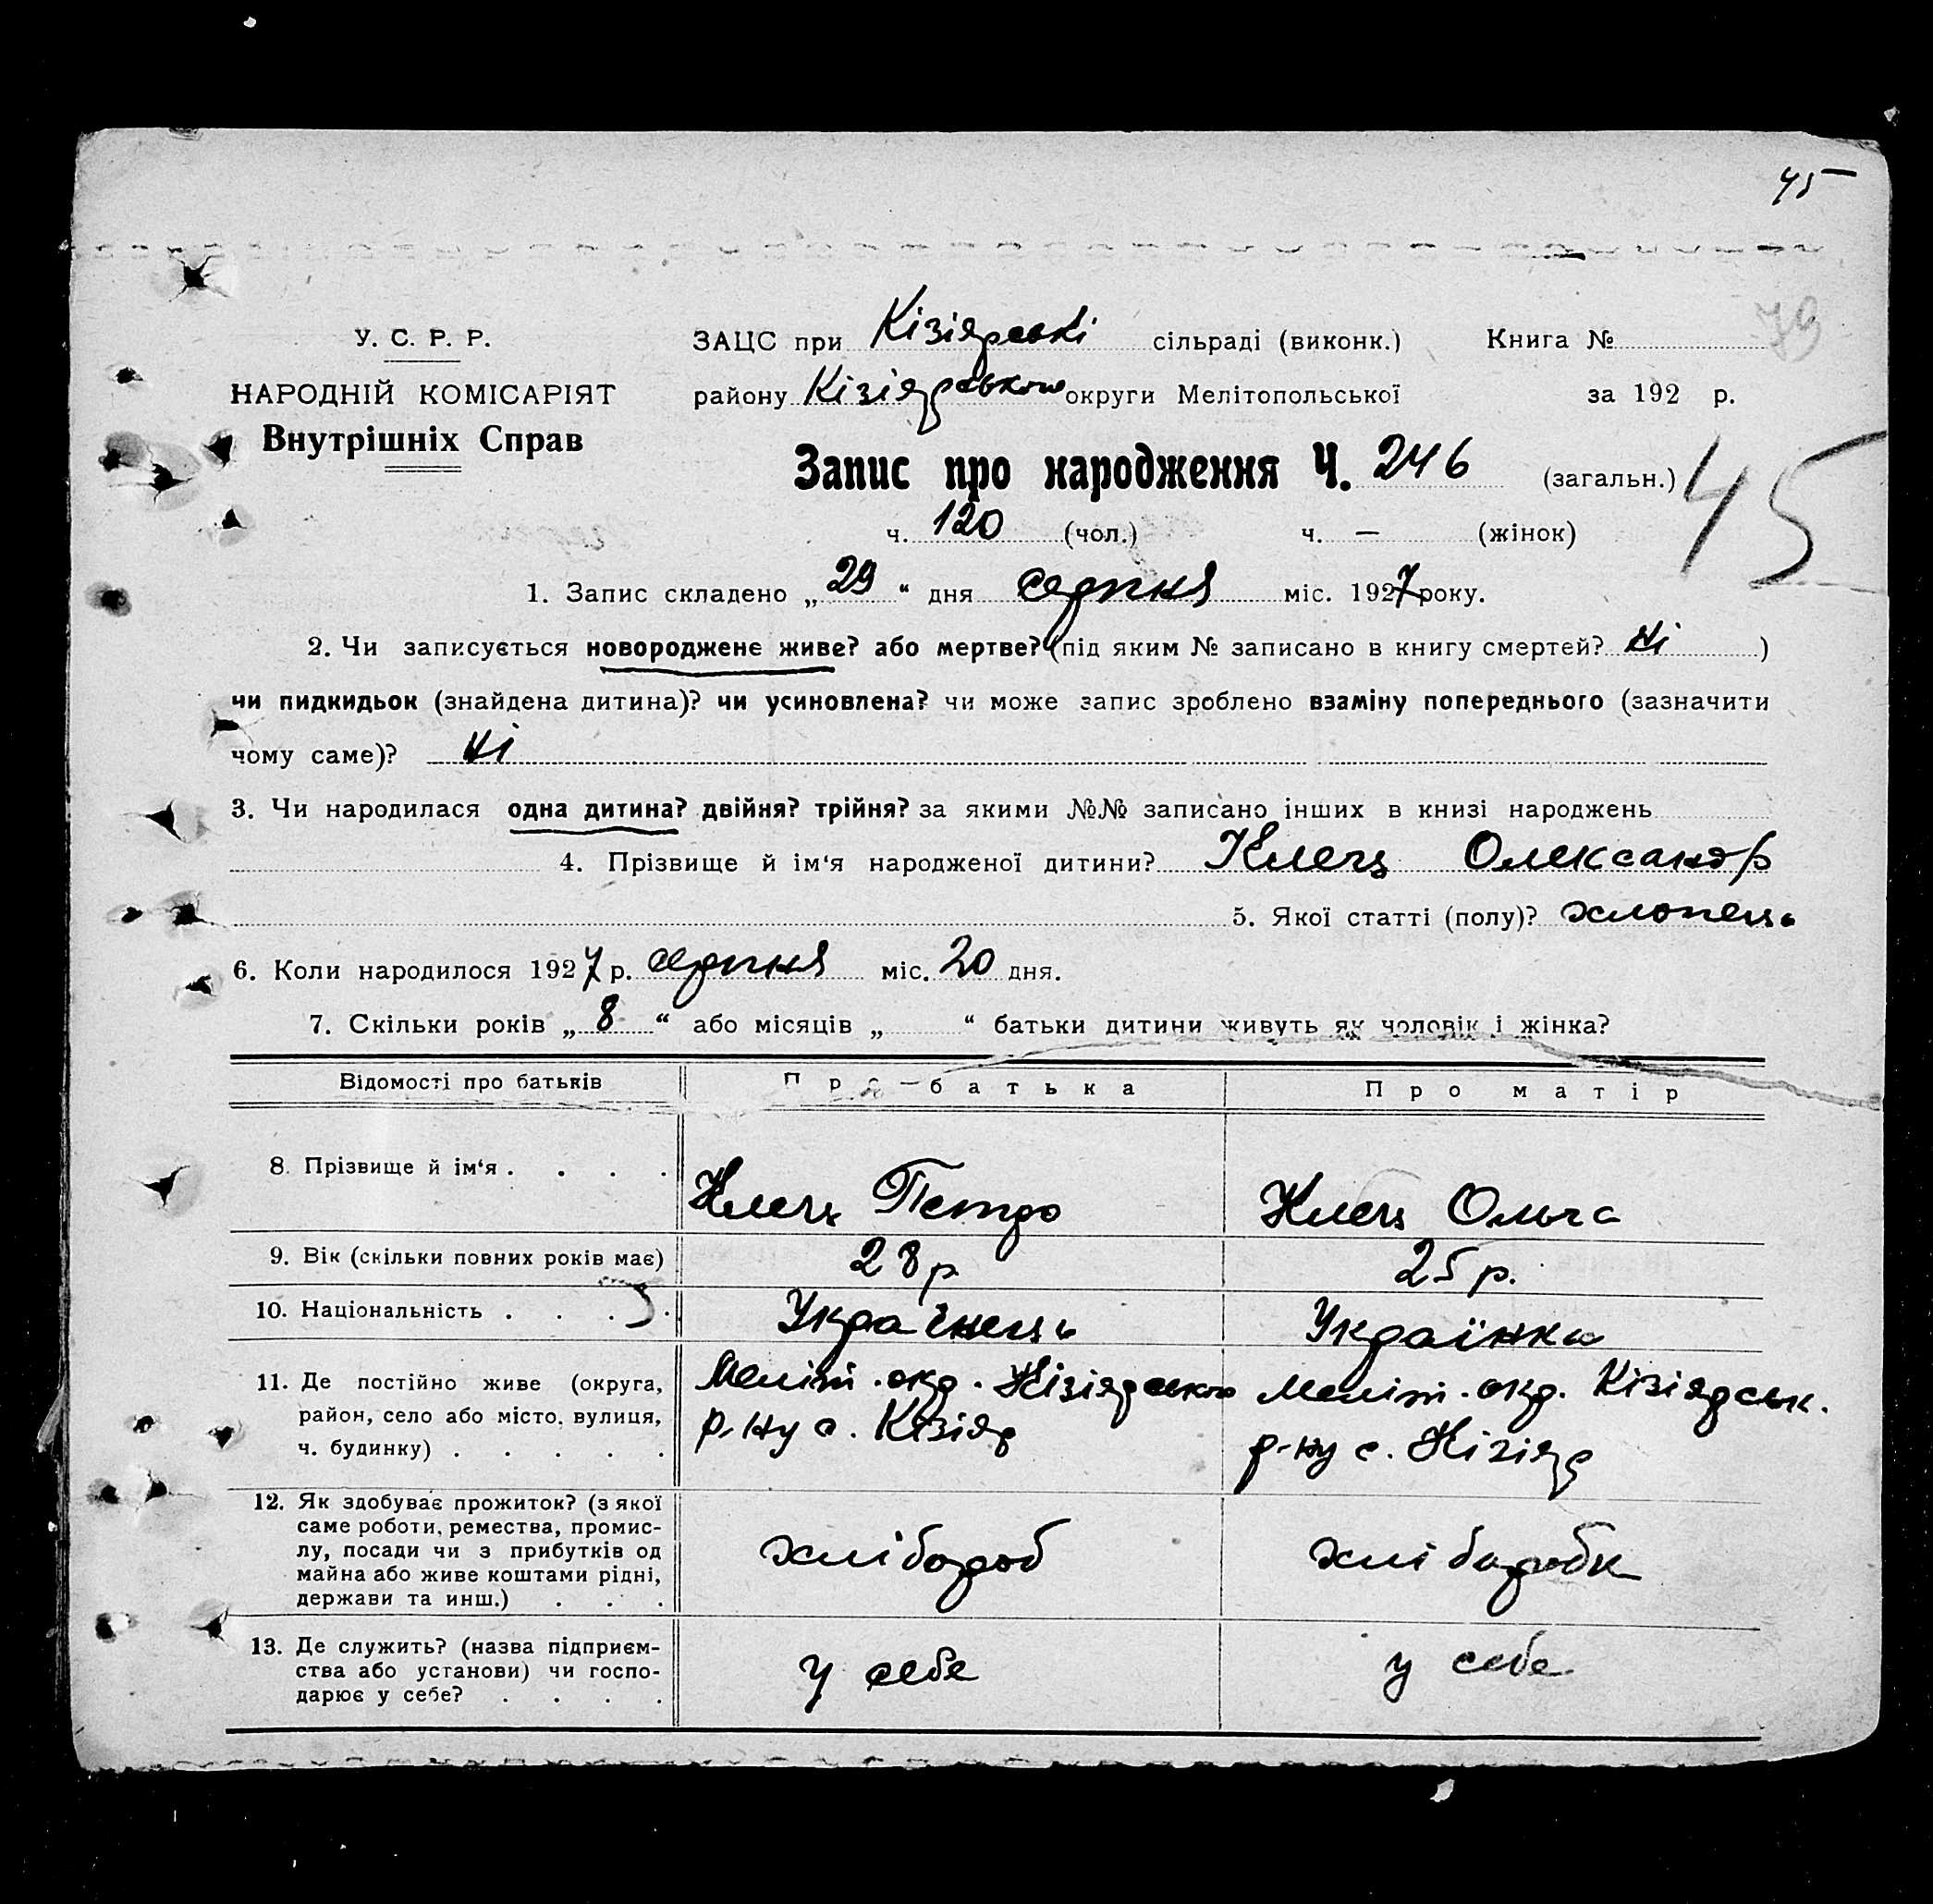 45
У. С. Р. Р.
НАРОДНІЙ КОМІСАРІЯТ
Внутрішніх Справ
ЗАЦС при Кізіярські сільраді (виконк.) Книга №
79
району Кізіярського округи Мелітопольської за 192 р.
Запис про народження Ч. 246 (загальн.)
45
ч. 120 (чол.) ч. — (жінок)
1. Запис складено „ 29 “ дня серпня міс. 1927 року.
2. Чи записується новороджене живе? або мертве? (під яким № записано в книгу смертей? Ні )
чи пидкидьок (знайдена дитина)? чи усиновлена? чи може запис зроблено взаміну попереднього (зазначити
чому саме)? Ні
3. Чи народилася одна дитина? двійня? трійня? за якими №№ записано інших в книзі народжень
4. Прізвище й ім‘я народженої дитини? Клець Олександр
5. Якої статті (полу)? хлопець
6. Коли народилося 1927 р. серпня міс. 20 дня.
7. Скільки років „ 8 “ або місяців „ “ батьки дитини живуть як чоловік і жінка?
Відомості про батьків Про батька Про матір
8. Прізвище й ім‘я . . . . Клець Петро Клець Ольга
9. Вік (скільки повних років має) 28 р 25 р.
10. Національність . . . . Українець Українка
11. Де постійно живе (округа,
район, село або місто, вулиця,
ч. будинку) . . . . .
Меліт. окр. Кізіярського
р-ну с. Кізіяр
Меліт. окр. Кізіярськ.
р-ну с. Кізіяр
12. Як здобуває прожиток? (з якої
саме роботи, ремества, промис-
лу, посади чи з прибутків од
майна або живе коштами рідні,
держави та инш.) . . .
хлібороб
хліборобк
13. Де служить? (назва підприєм-
ства або установи) чи госпо-
дарює у себе? . . . .
у себе
у себе